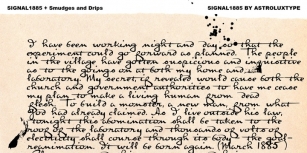 SIGNAL1885 + Smudges and Drips
SIGNAL1885 BY ASTROLUXTYPE
I have been working night and day so that the
experiment could go forward as planned. The people
in the village have gotten suspicious and inquisitive
as to the goings on at both my home and
laboratory. My secret, if revealed would cause both the
church and government authorities to have me cease
my plan to make a living human from dead
flesh. To build a monster, a new man, from what
God had already claimed. As I live outside his law,
tonight this abomination shall be taken to the
roof of the laboratory and thousands of volts of
electricity shall course through its body. The goal-
reanimation. It will be born again. (March 1885)